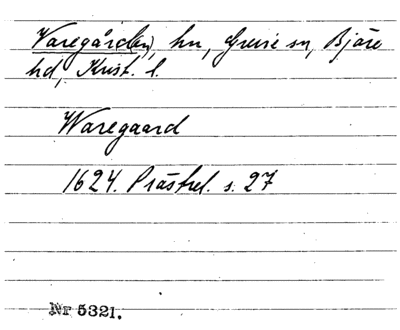 Varegård(en), hn, Grevie sn, Bjäre
hd, Krist. l.
Waregaard
1624. Prästrel. s. 27
Nr 5321.